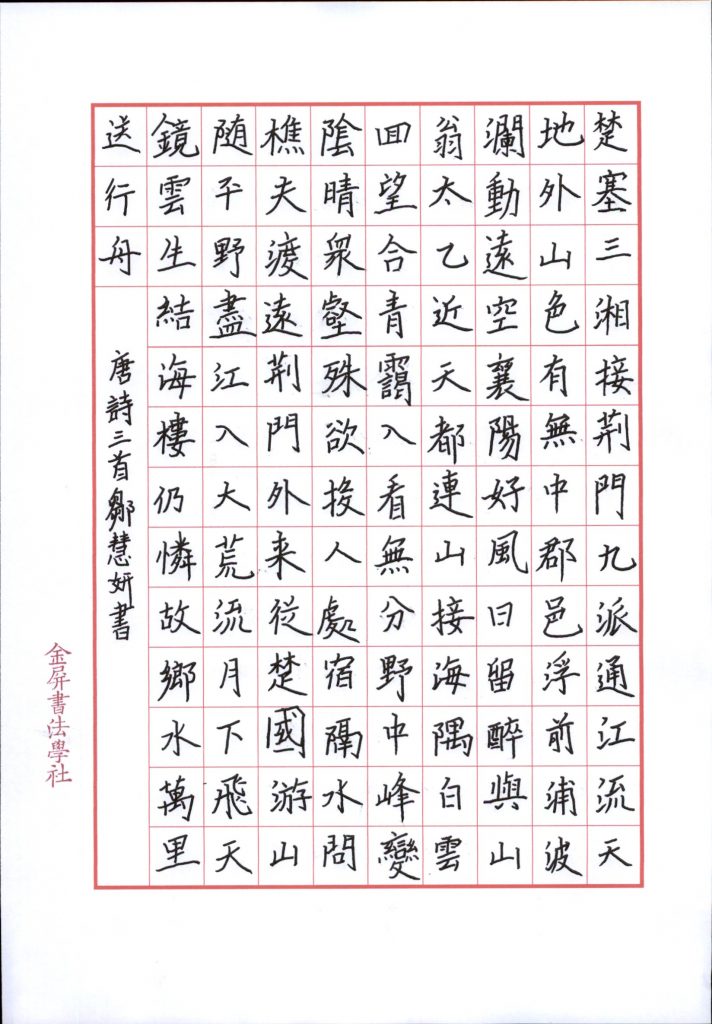 楚塞三湘接荆門九派通江流天
地外山色有無中郡邑浮前浦波
瀾動遠空襄陽好風日留醉與山
翁太乙近天都連山接海隅白雲
回望合青靄入看無分野中峰變
陰晴衆壑殊欲投人處宿隔水問
樵夫渡遠荆門外来從楚國游山
随平野盡江入大荒流月下飛天
鏡雲生結海樓仍憐故鄉水萬里
送行舟
唐詩三首鄒慧妍書
金屏書法學社